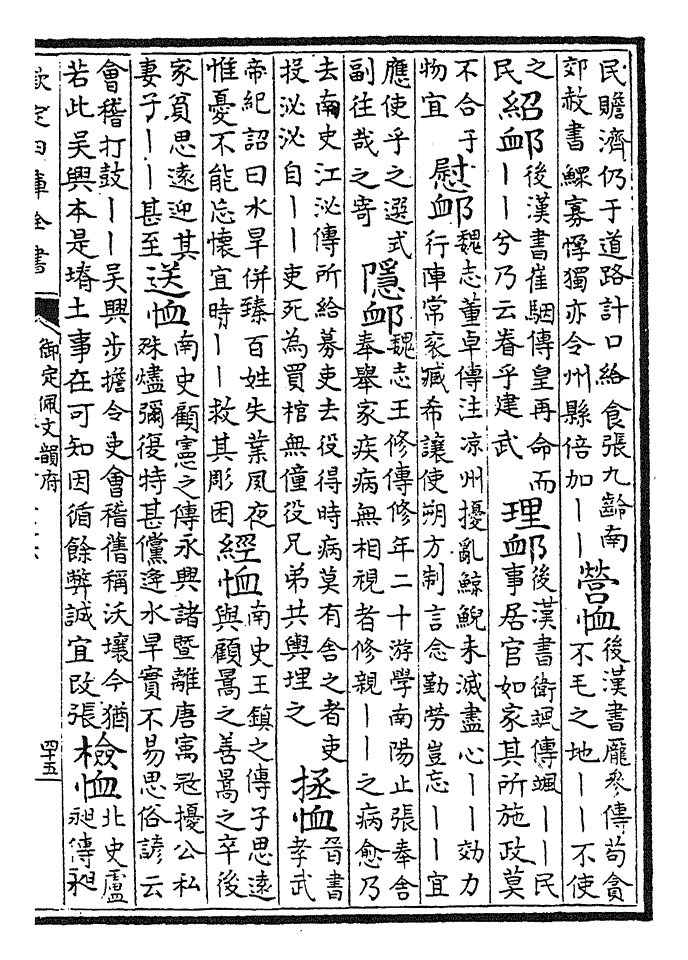 民贍濟仍于道路計口給食張九齡南
郊赦書鰥寡惸獨亦令州縣倍加丨丨
營恤
後漢書龎參傳苟貪
不毛之地丨丨不使
之
民
紹卹
後漢書崔駰傳皇再命而
丨丨兮乃云眷乎建武
理卹
後漢書衛颯傳颯丨丨民
事居官如家其所施政莫
不合于
物宜
慰卹
魏志董卓傳注凉州擾亂鯨鯢未滅盡心丨丨効力
行陣常衮臧希讓使朔方制言念勤勞豈忘丨丨宜
應使乎之選式
副往哉之寄
隱卹
魏志王修傳修年二十游學南陽止張奉舍
奉舉家疾病無相視者修親丨丨之病愈乃
去南史江泌傳所給募吏去役得時病莫有舍之者吏
投泌泌自丨丨吏死為買棺無僮役兄弟共輿埋之
拯恤
晉書
孝武
帝紀詔曰水旱併臻百姓失業夙夜
惟憂不能忘懷宜時丨丨救其彫困
經恤
南史王鎮之傳子思遠
與顧暠之善暠之卒後
家貧思遠迎其
妻子丨丨甚至
送恤
南史顧憲之傳永興諸暨離唐寓寇擾公私
殊燼彌復特甚儻逢水旱實不易思俗諺云
會稽打鼓丨丨吳興步擔令吏會稽舊稱沃壤今猶
若此吳興本是塉土事在可知因循餘弊誠宜改張
檢恤
北史盧
昶傳昶
欽定四庫全書
御定佩文韻府
四十五